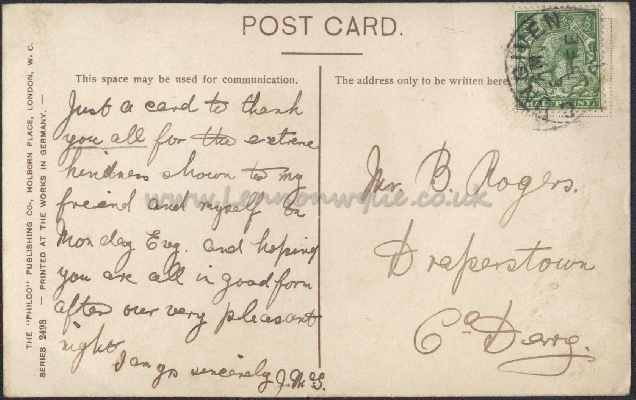 POST CARD.
This space may be used for communication.
The address only to be written here
Just a card to thank
you all for the extreme
kindness shown to my
friend and myself on
Monday Evg. and hoping
you are all in good form
after our very pleasant
night
I am yrs sincerely J. McG.
Mr. B. Rogers.
Draperstown
Co Derry.
THE "PHILCO" PUBLISHING CO., HOLBORN PLACE, LONDON, W. C.
SERIES 2498 — PRINTED AT THE WORKS IN GERMANY. —
GIVEN
HALFPENNY